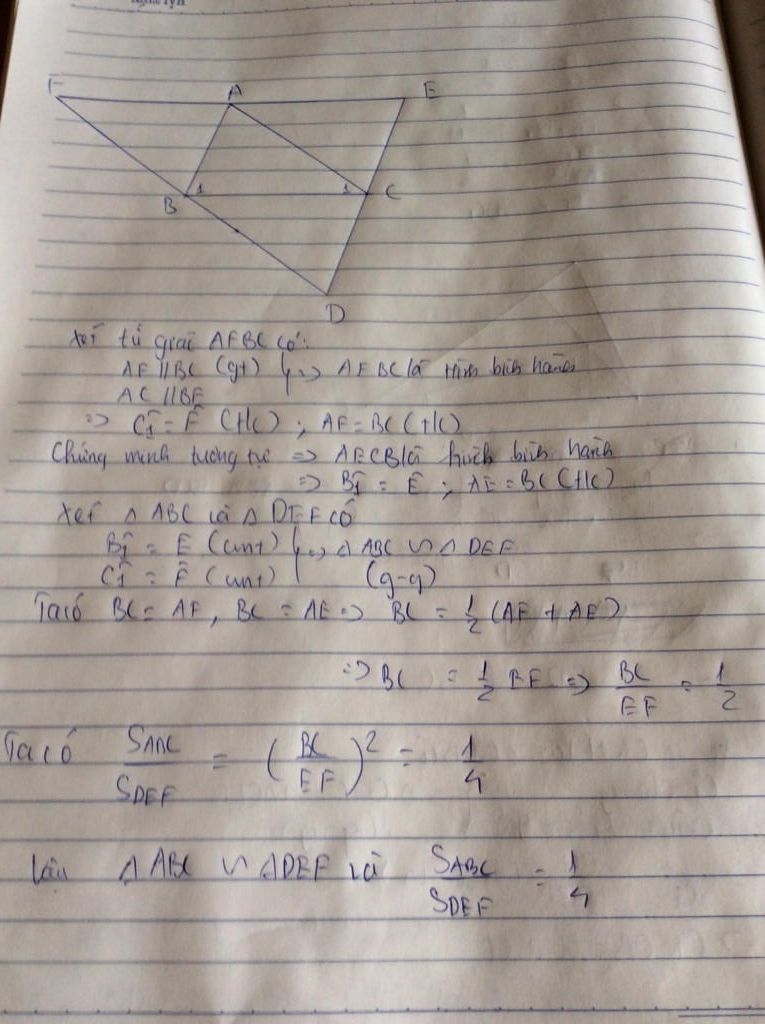 F A E
B 1 1 C
D
Xét tứ giác AFBC có:
AF // BC (gt) } => AFBC là hình bình hành
AC // BF
=> Ĉ1 = F̂ (t/c) ; AF = BC (t/c)
Chứng minh tương tự => AECB là hình bình hành
=> B̂1 = Ê ; AE = BC (t/c)
Xét Δ ABC và Δ DEF có
B̂1 = Ê (cmt) } => Δ ABC ∽ Δ DEF
Ĉ1 = F̂ (cmt) (g-g)
Ta có BC = AF, BC = AE => BC = 1/2 (AF + AE)
=> BC = 1/2 EF => BC/EF = 1/2
Ta có SABC/SDEF = (BC/EF)² = 1/4
Vậy Δ ABC ∽ Δ DEF và SABC/SDEF = 1/4